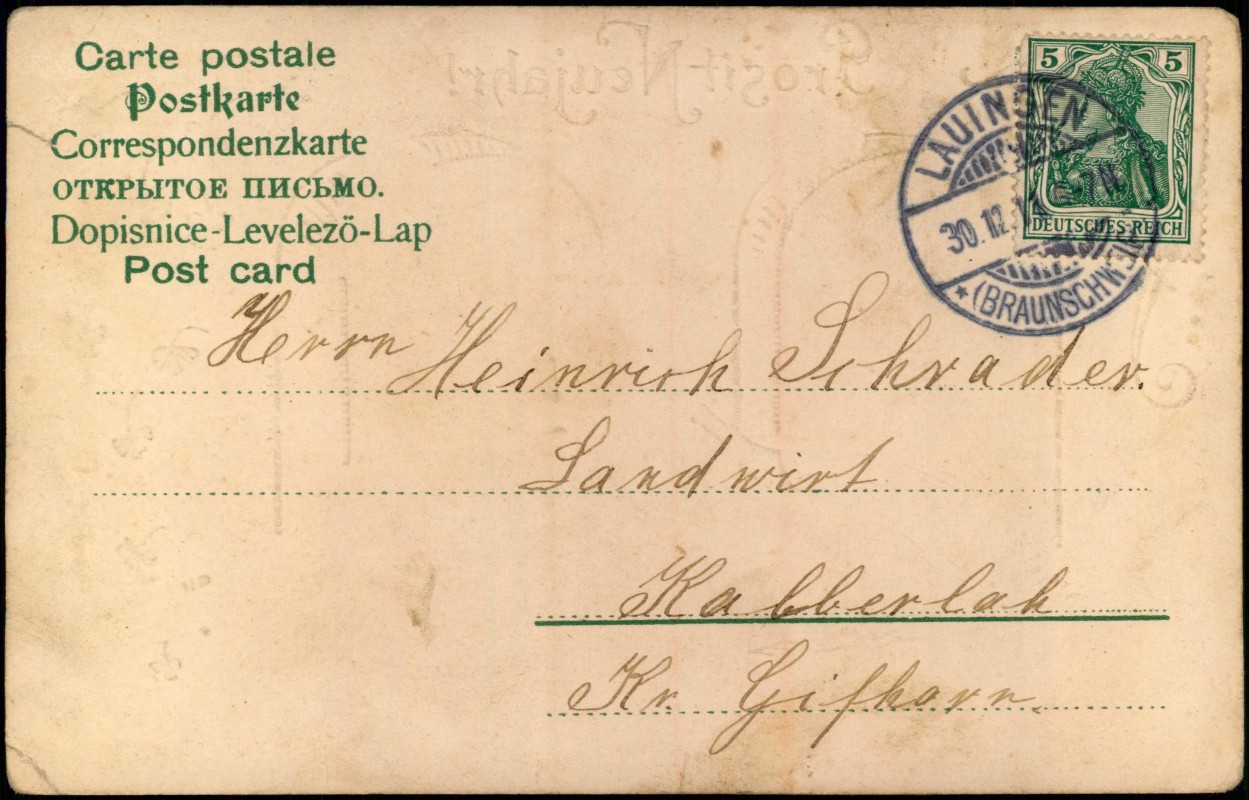 Carte postale
Postkarte
Correspondenzkarte
ОТКРЫТОЕ ПИСЬМО.
Dopisnice-Levelező-Lap
Post card
Prosit Neujahr!
5 5
DEUTSCHES REICH
LAUINGEN
30.12.
*(BRAUNSCHWEIG)
Herrn Heinrich Schrader.
Landwirt
Kalberlah
Kr. Gifhorn.